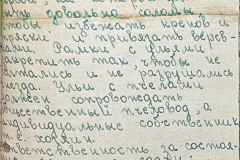 довольно соломы,
чтобы избежать кренов и
тряски и привязать верев-
ками. Рамки с ульями
закрепить так, чтобы не
болтались и не разрушились
гнезда. Ульи с пчелами
должен сопровождать
общественный пчеловод, а
индивидуальные собственник
т.е. хозяин.
ответственность за состоя-